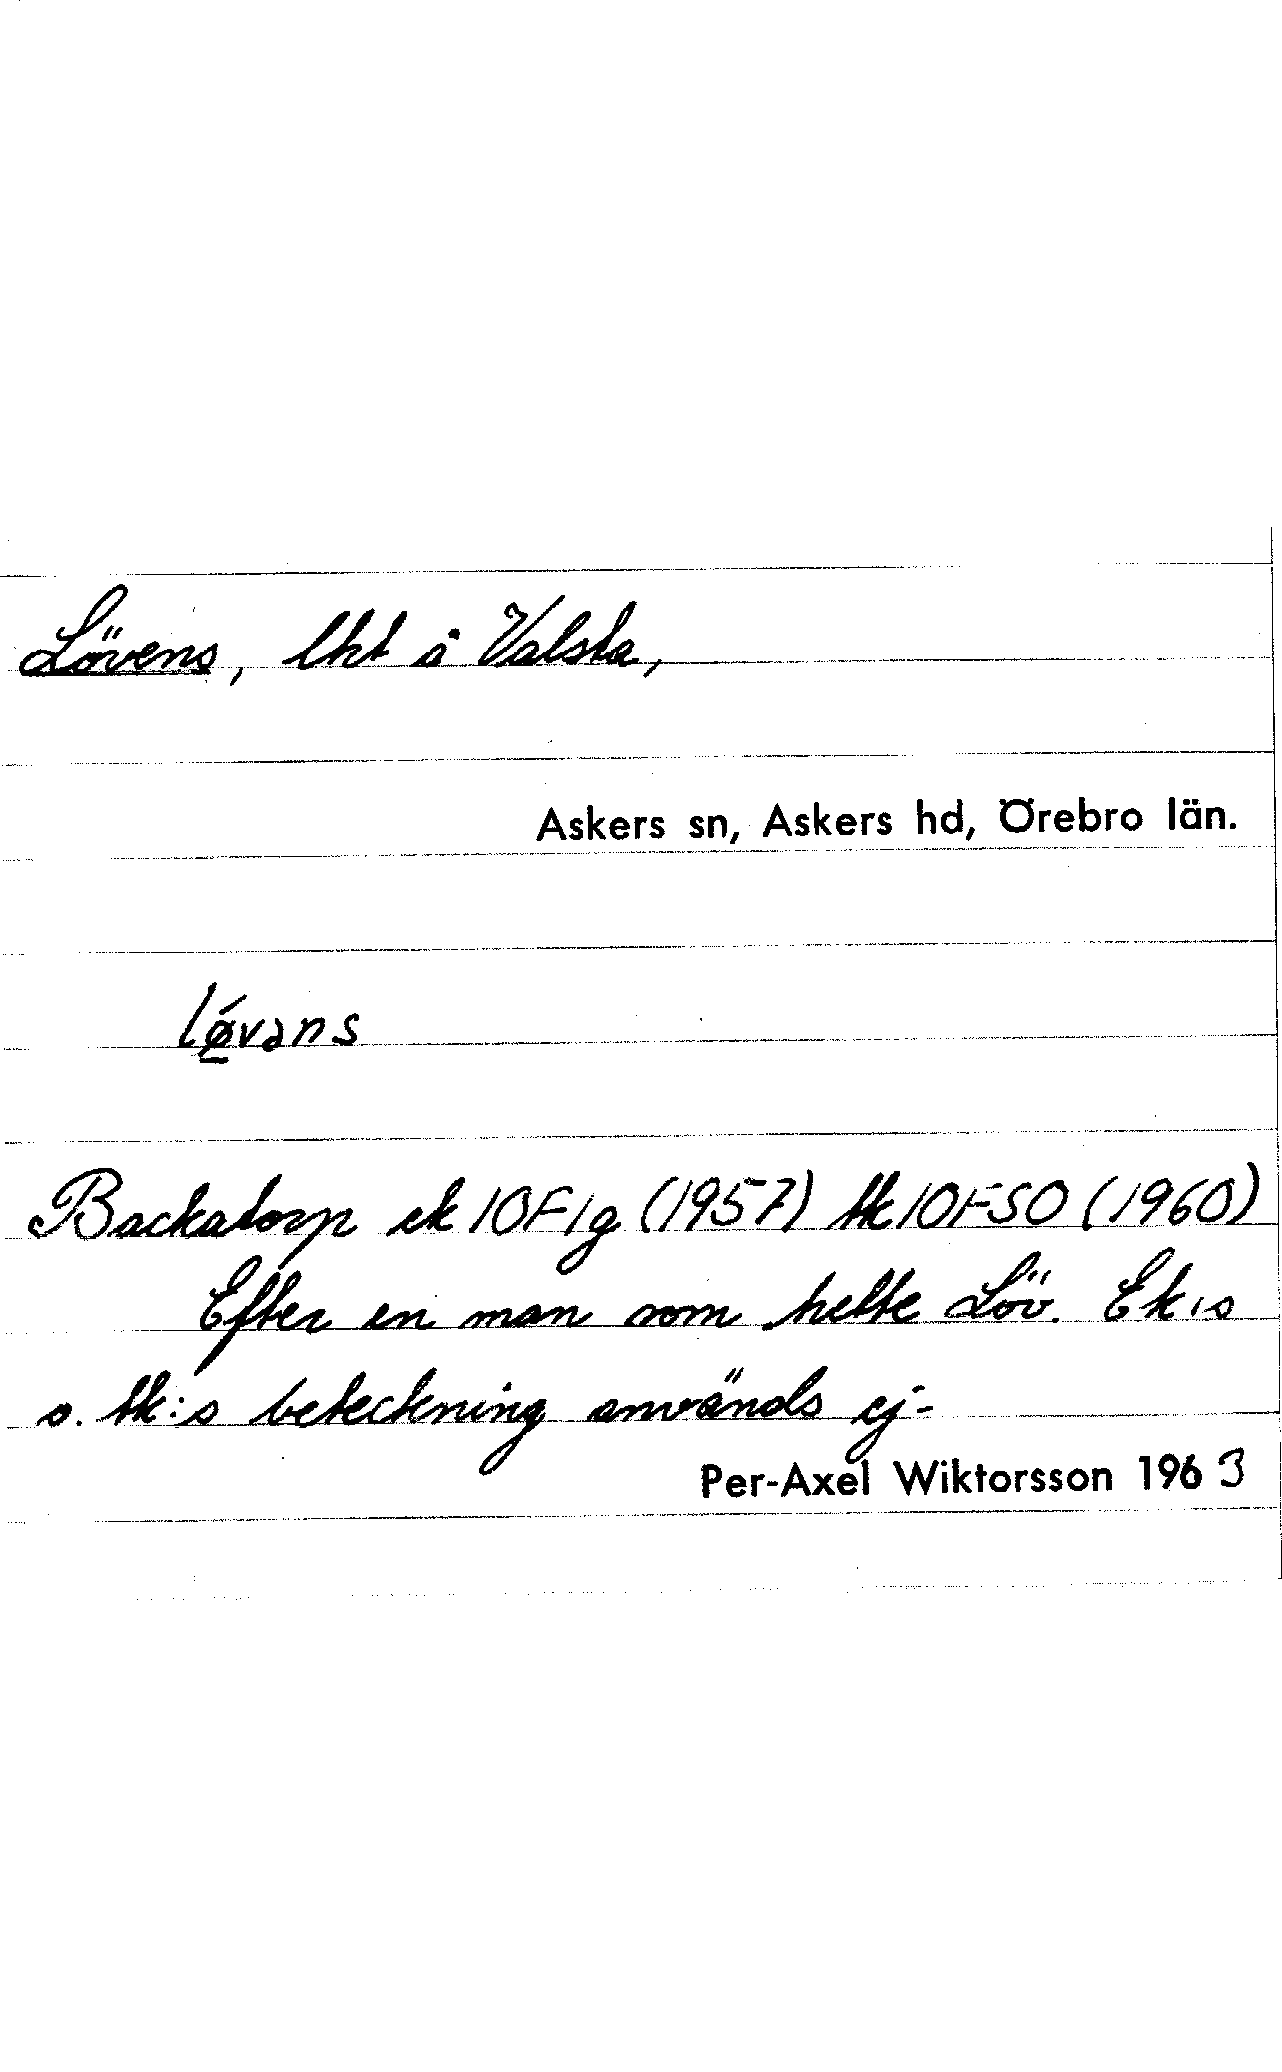 Lövens, lht å Valsta,
Askers sn, Askers hd, Örebro län.
lǿ̲vəns
Backatorp ek 10F1g (1957) tk 10FSO (1960)
Efter en man som hette Löv. Ek:s
o. tk:s beteckning används ej-
Per-Axel Wiktorsson 1963